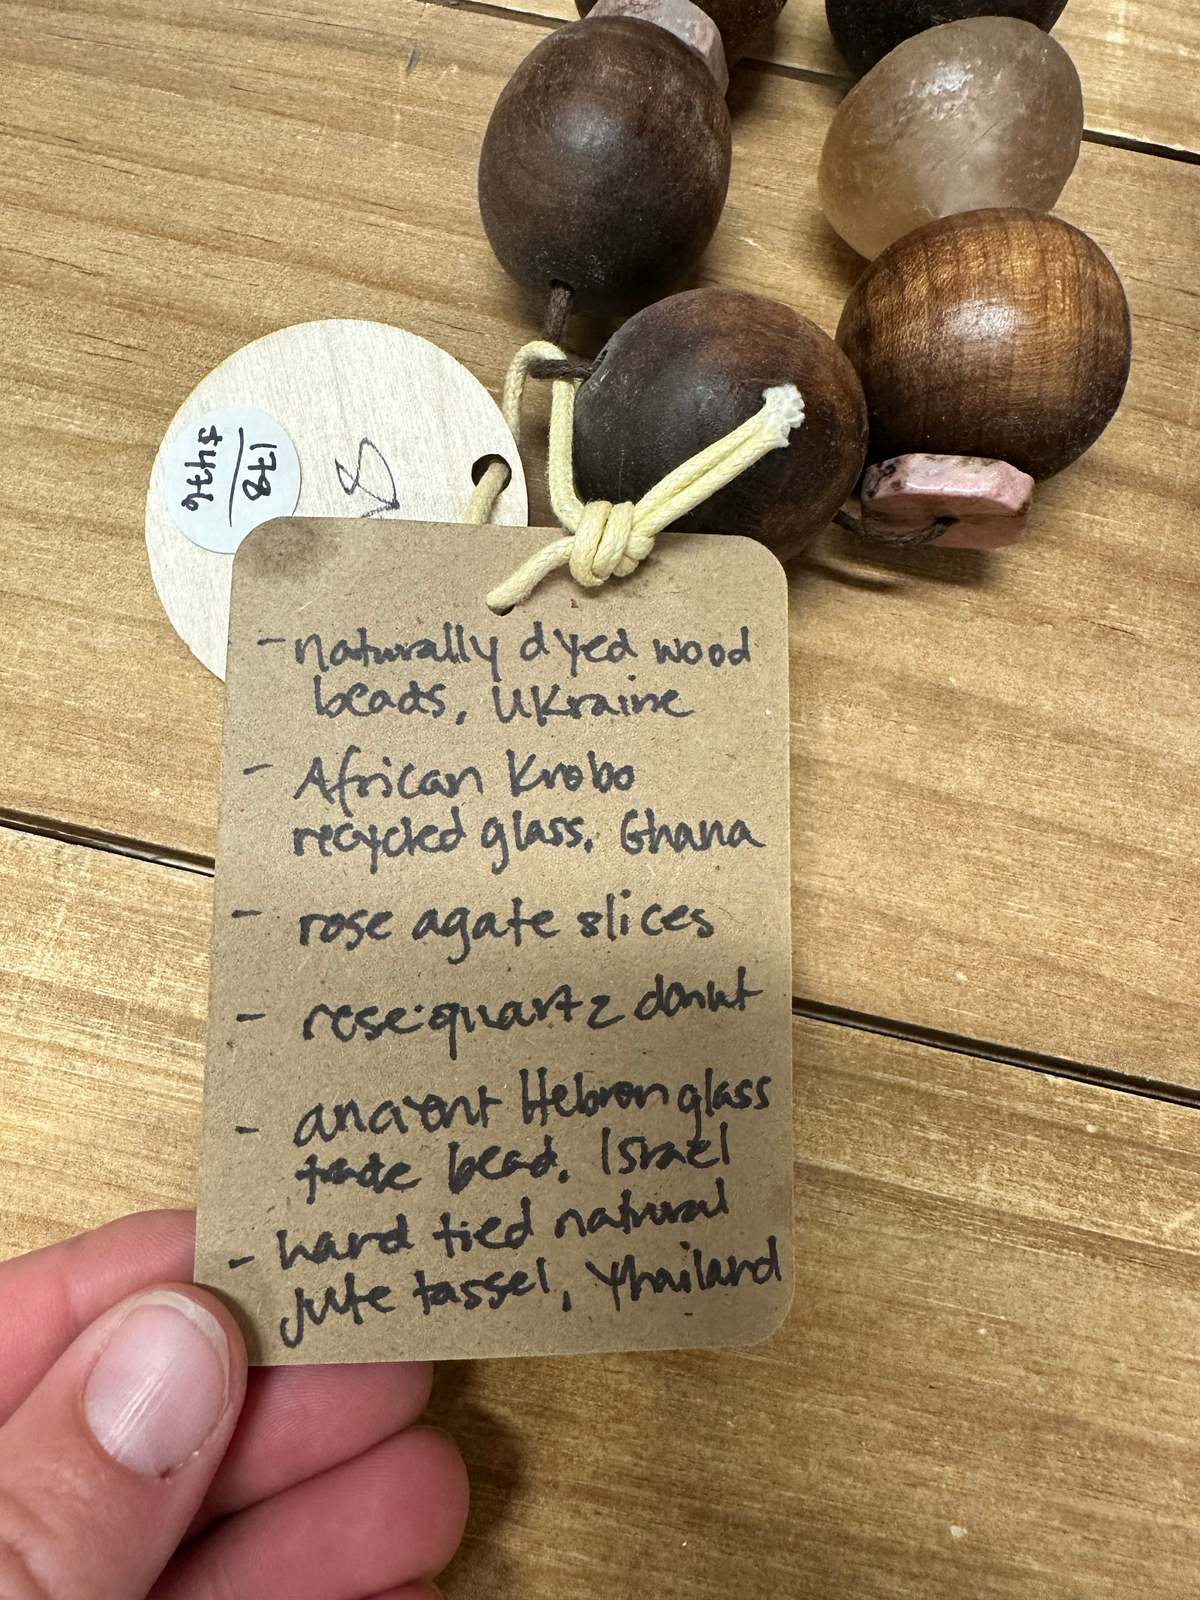 178
$476
S
- naturally dyed wood
beads, Ukraine
- African Krobo
recycled glass, Ghana
- rose agate slices
- rose quartz donut
- ancient Hebron glass
trade bead, Israel
- hand tied natural
jute tassel, Thailand